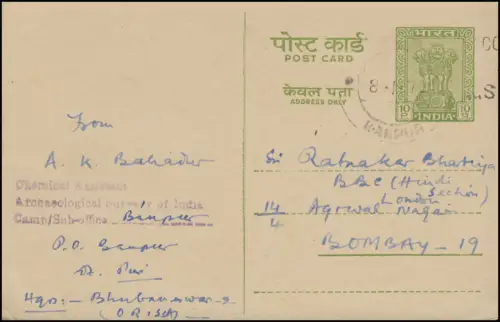 पोस्ट कार्ड
POST CARD
केवल पता
ADDRESS ONLY
भारत
10
10
INDIA
From
A. K. Bahadur
Chemical
Archaeological Survey of India
Camp/Sub-office
P.O.
Dt. Puri
Hqrs:- Bhubaneswar-2
(ORISSA)
Sri Ratnakar Bhartiya
BBC (Hindi
Section)
London
14/4 Agrwal Nagar
BOMBAY - 19
KANPUR